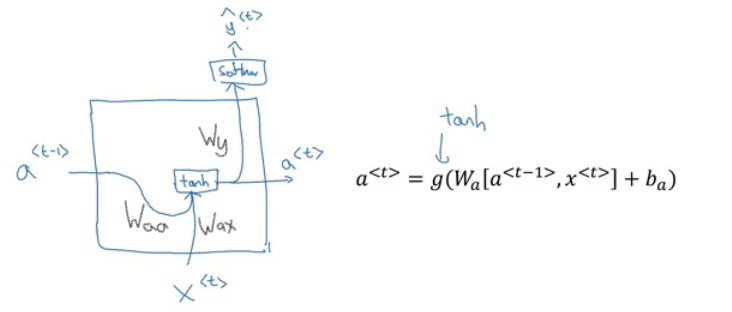 ŷ^<t>
softmax
Wy
a^<t-1>
tanh
a^<t>
Waa
Wax
x^<t>
tanh
a^<t> = g(W_a[a^<t−1>, x^<t>] + b_a)